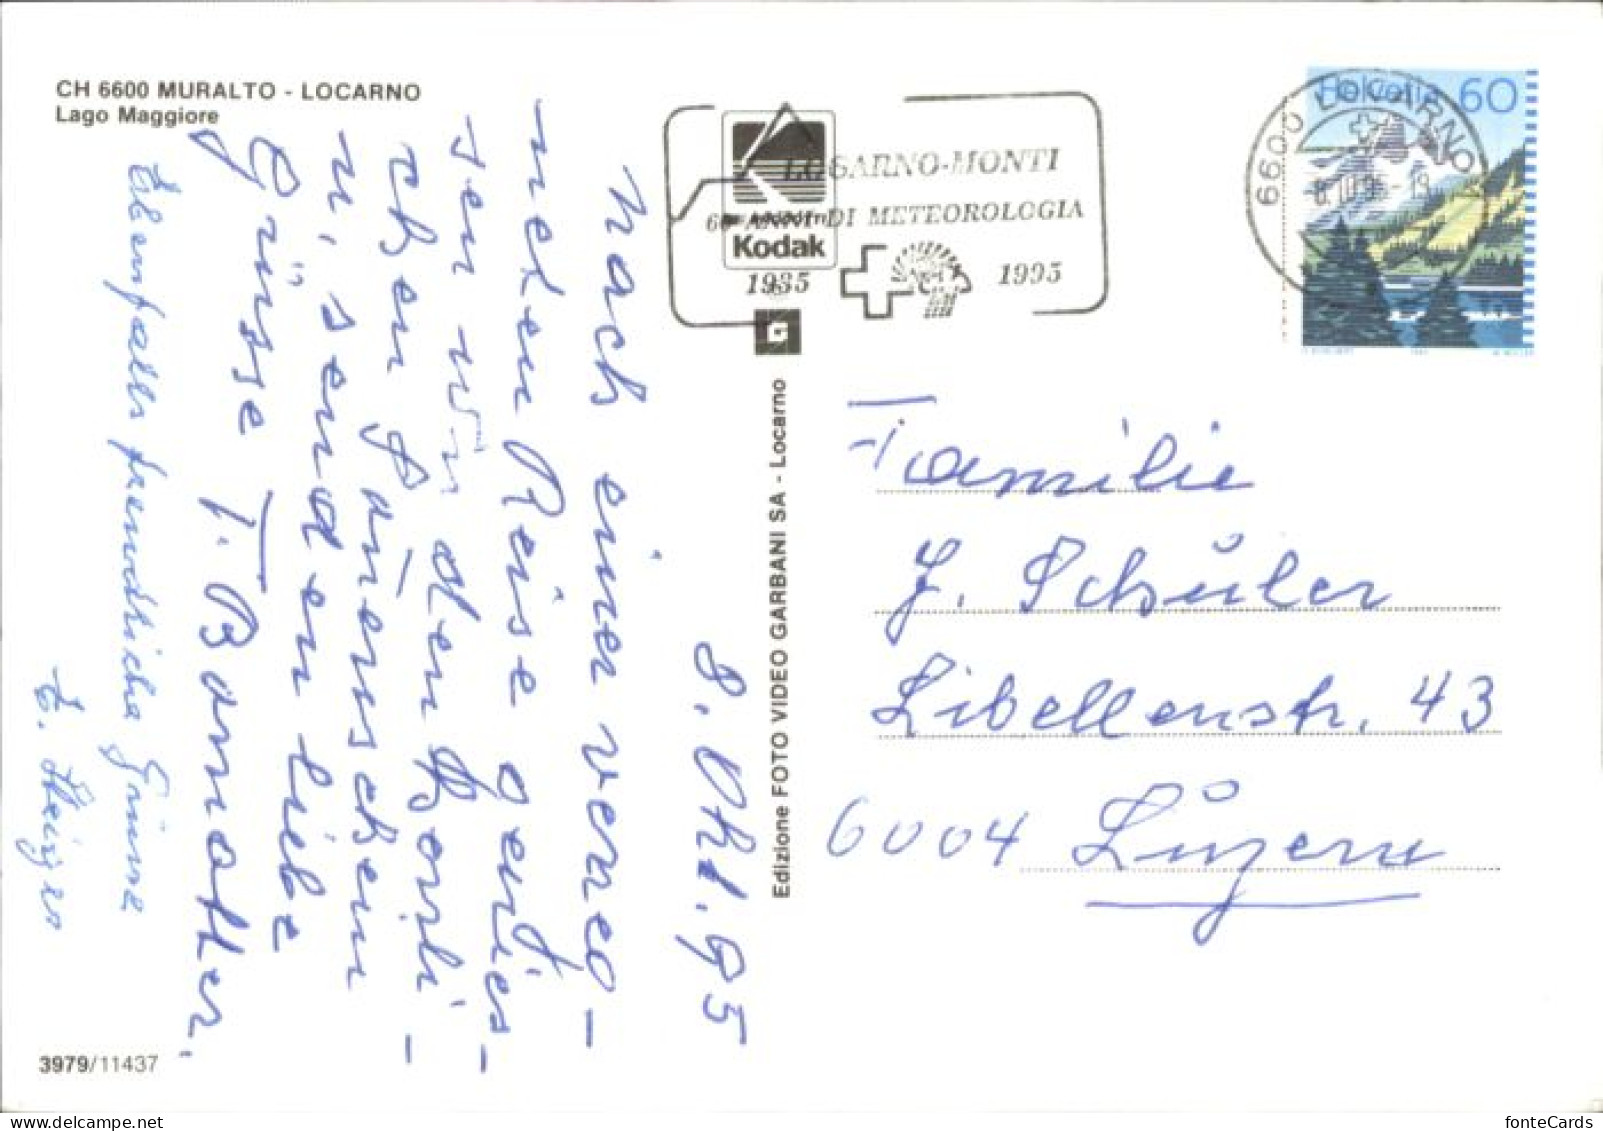 CH 6600 MURALTO - LOCARNO
Lago Maggiore
8. Okt. 95
Nach einer verreg-
neten Reise genies-
sen wir den herrli-
chen
u. senden liebe
Grüsse T. Bomatter.
Ebenfalls freundliche Grüsse
E. Steiger
3979/11437
Edizione FOTO VIDEO GARBANI SA - Locarno
G
Kodak
LOCARNO-MONTI
60 ANNI DI METEOROLOGIA
1935
1995
6600 LOCARNO
Helvetia 60
Familie
J. Schüler
Libellenstr. 43
6004 Luzern
fonteCards